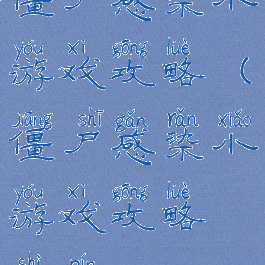 僵尸感染小
yóu xì gōng lüè
游戏攻略（
jiāng shī gǎn rǎn xiǎo
僵尸感染小
yóu xì gōng lüè
游戏攻略
shì pín